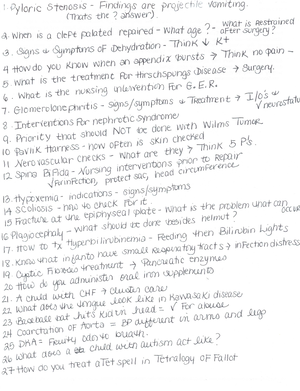 1. Pyloric Stenosis - Findings are projectile vomiting.
(Thats the ? answer).
2. When is a cleft palated repaired - What age? - What is restrained after surgery?
3. Signs & Symptoms of Dehydration - Think ↓ K+
4 How do you Know when an appendix bursts → Think no pain -
5 What is the treatment for Hirschsprungs Disease → Surgery.
6. What is the nursing intervention for G.E.R.
7. Glomerolonephritis - signs/symptoms & Treatment → I/O's &
8. Interventions For nephrotic Syndrome
9. Priority that should NOT be done with Wilms Tumor
10 Pavlik Harness - how often is skin checked
11 Nerovascular Checks - What are they → Think 5 P's.
12 Spina Bifida - Nursing interventions prior to Repair
protect sac, head circumference
13. Hypoxemia - indications - signs/symptoms
14 Scoliosis - how to check for it.
15 Fracture at the epiphyseal plate - What is the problem that can occur
16 Plagiocephaly - What should be done besides helmet?
17. How to Tx Hyperbilirubinemia - Feeding then Bilirubin Lights
18. Know what infants have small respiratory tracts → infection distress
19. Cystic Fibrosis treatment → Pancreatic enzymes
20 How do you administer oral iron supplements
21. A child with CHF → cluster care
22 What does the tongue look like in Kawasaki disease
23 Baseball bat hits kid in head = √ For abuse
24 Coarctation of Aorta = BP different in arms and legs
25 DKA = Fruity can to breath.
26 What does a child with autism act like?
27 How do you treat a Tet spell in Tetralogy of Fallot